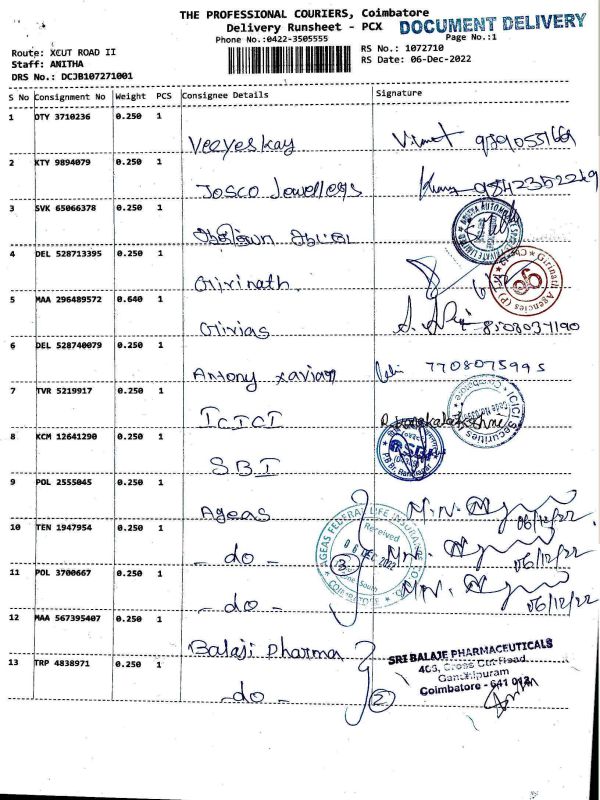 THE PROFESSIONAL COURIERS, Coimbatore
Delivery Runsheet - PCX
DOCUMENT DELIVERY
Phone No.:0422-3505555
Page No.:1
Route: XCUT ROAD II
Staff: ANITHA
DRS No.: DCJB107271001
RS No.: 1072710
RS Date: 06-Dec-2022
S No Consignment No Weight PCS Consignee Details Signature
1 OTY 3710236 0.250 1
Veeyeskay
2 KTY 9894079 0.250 1
Josco Jewellers
3 SVK 65066378 0.250 1
4 DEL 528713395 0.250 1
Girinath.
Girinath Agencies (P)
5 MAA 296489572 0.640 1
Girias 8508037190
6 DEL 528740079 0.250 1
Antony Xavian 7708075995
7 TVR 5219917 0.250 1
ICICI
ICICI Securities
Coimbatore
8 KCM 12641290 0.250 1
SBI
SBI
9 POL 2555045 0.250 1
Ageas M.N. 06/12/22
AGEAS FEDERAL LIFE INSURANCE CO.
Received
06 DEC 2022
10 TEN 1947954 0.250 1
- do - 3 M.N. 06/12/22
11 POL 3700667 0.250 1
- do - M.N. 06/12/22
12 MAA 567395407 0.250 1
Balaji Pharma
SRI BALAJE PHARMACEUTICALS
403, Cross Cut Road
Gandhipuram
Coimbatore - 641 012
13 TRP 4838971 0.250 1
- do - 2